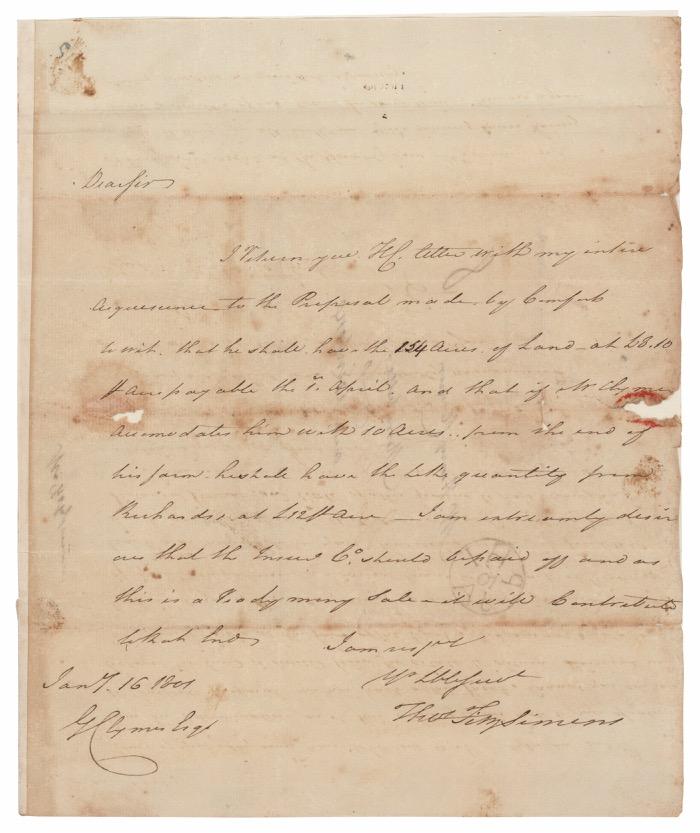 Dear Sir
I return you HC. letter with my entire
acquescence to the Proposal made by Comfort
to wit. that he shall have the 154 Acres of Land at £8.10
⅌ Acre payable the 1st. April and that if Mr Clymer
accomodates him with 10 Acres .. from the end of
his farm he shall have the like quantity from
Richards's at £12 ⅌ Acre — I am extreemly desir
ous that the Insur. Co. should be paid off and as
this is a Ready mony Sale — it will Contribute
to that End
I am respy
Yr Obl Servt
Thos FitzSimons
Jany. 16 1801
G Clymer Esqr